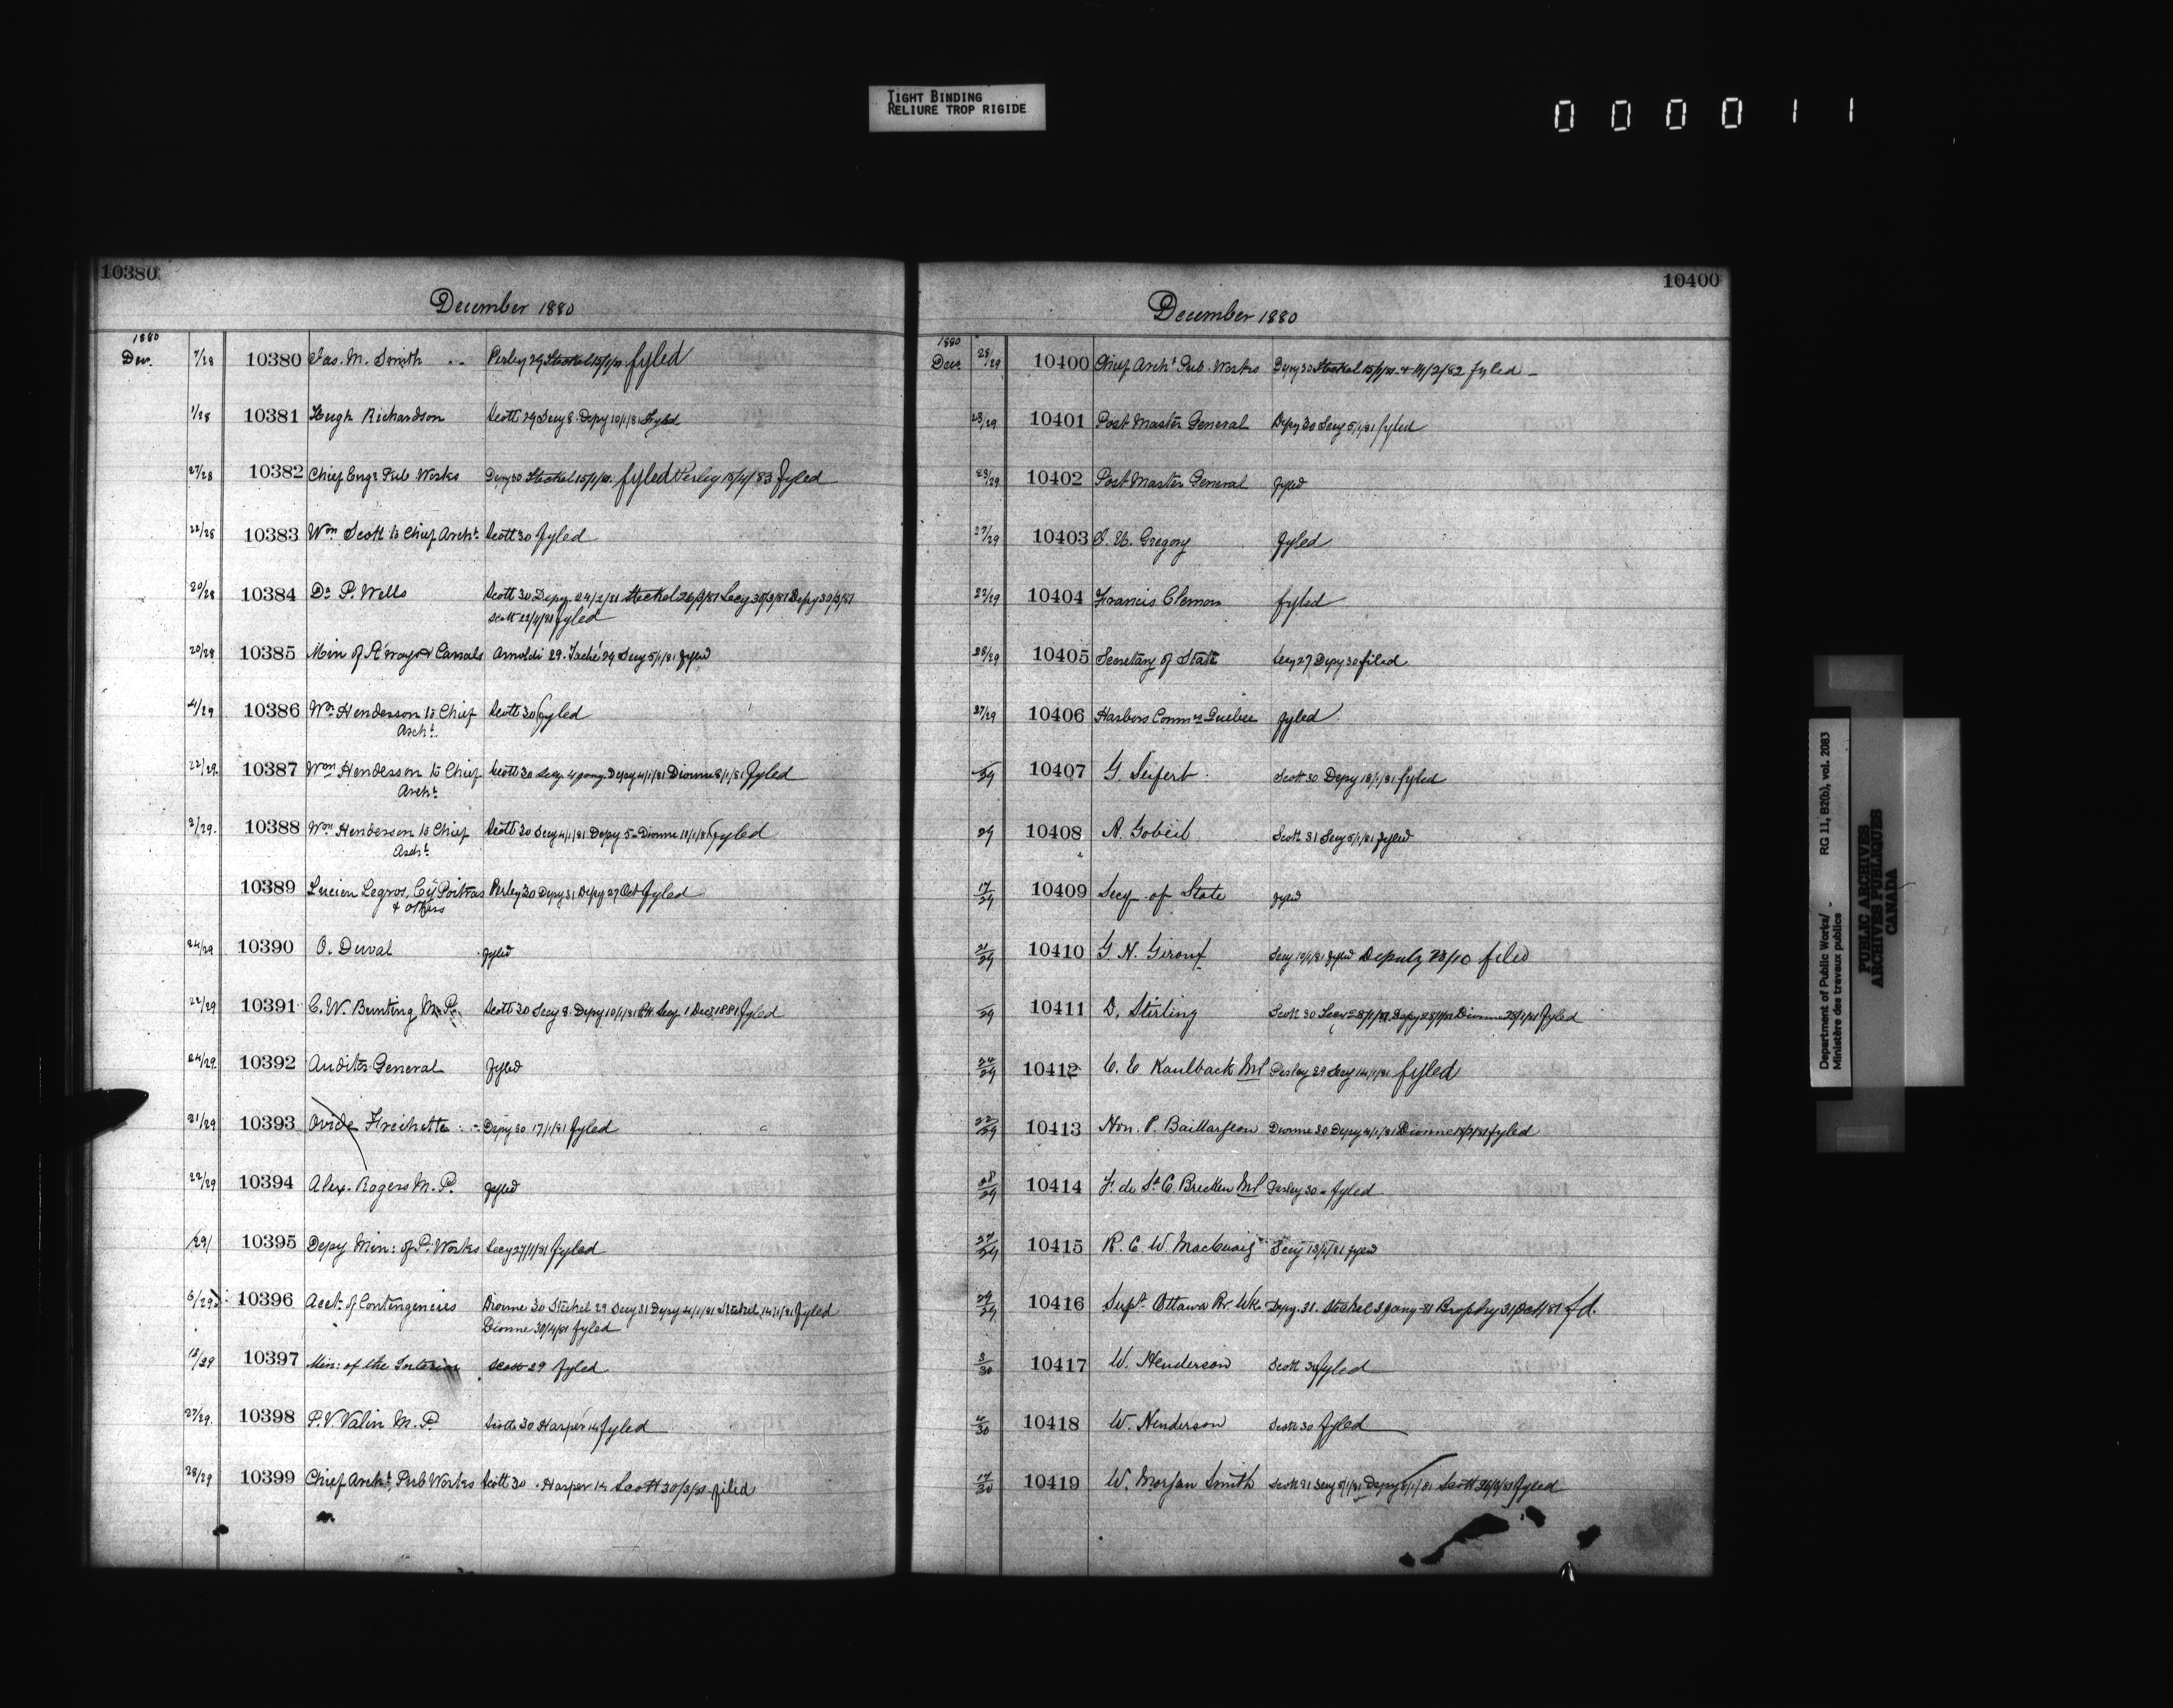 TIGHT BINDING
RELIURE TROP RIGIDE
000011
10380
December 1880
1880
Dec. 7/28 10380 Jas. M. Smith Perley 29 Steckel 15/1/81 fyled
1/28 10381 Hugh Richardson Scott 29 Secy 8. Depy 10/1/81 Fyled
27/28 10382 Chief Engr Pub Works Depy 30 Steckel 15/1/81. fyled Perley 18/4/83 fyled
22/28 10383 Wm Scott to Chief Archt. Scott 30 fyled
20/28 10384 Dr P. Wells Scott 30 Depy. 24/2/81 Steckel 26/3/81 Secy 30/3/81 Depy 30/3/81
Scott 22/4/81 fyled
20/28 10385 Min of R'ways & Canals Arnoldi 29. Taché 29 Secy 5/1/81 fyled
4/29 10386 Wm Henderson to Chief Scott 30 fyled
Archt.
22/29 10387 Wm Henderson to Chief Scott 30 Secy. 4 Jany. Depy 4/1/81 Dionne 8/1/81 fyled
Archt.
3/29. 10388 Wm Henderson to Chief Scott 30 Secy 4/1/81 Depy 5 - Dionne 11/1/81 fyled
Archt.
10389 Lucien Legros, Poitras Perley 30 Depy 31 Depy 27 Oct fyled
& others
24/29 10390 O. Duval fyled
22/29 10391 C. W. Bunting M.P. Scott 30 Secy 8. Depy 10/1/81 Secy 1 Dec 1881 fyled
24/29 10392 Auditor General fyled
21/29 10393 Ovide Frechette Depy 30 17/1/81 fyled
22/29 10394 Alex. Rogers M. P. fyled
/29/ 10395 Depy Min: of P. Works Secy 27/1/81 fyled
6/29 10396 Acct. of Contingencies Dionne 30 Steckel 29 Secy 31 Depy 4/1/81 Steckel 14/1/81 fyled
Dionne 30/4/81 fyled
18/29 10397 Min: of the Interior Scott 29 fyled
27/29. 10398 P. V. Valin M. P. Scott 30 Harper 14 fyled
28/29 10399 Chief Archt. Pub Works Scott 30 . Harper 14 Scott 30/3/81 filed
10400
December 1880
1880
Dec. 28/29 10400 Chief Archt Pub. Works Depy 30 Steckel 15/1/81 & 14/2/82 fyled
23/29 10401 Post Master General Depy 30 Secy 5/1/81 fyled
23/29 10402 Post Master General fyled
27/29 10403 J. U. Gregory fyled
22/29 10404 Francis Clemow fyled
28/29 10405 Secretary of State Secy 27 Depy 30 filed
27/29 10406 Harbors Commrs Quebec fyled
/29 10407 G. Seifert. Scott 30 Depy 18/1/81 fyled
29 10408 A. Gobeil Scott 31 Secy 5/1/81 fyled
17/29 10409 Secy of State fyled
21/29 10410 G. N. Secy 10/1/81 fyled Deputy 23/10 filed
/29 10411 D. Stirling Scott 30 Secy 28/1/81 Depy 28/1/81 Dionne fyled
24/29 10412 C. E. Kaulback MP Perley 29 Secy 14/1/81 fyled
22/29 10413 Hon. P. Baillargeon Dionne 30 Depy 4/1/81 Dionne fyled
28/29 10414 F. de St C. Brecken MP Perley 30 - fyled
27/29 10415 R. C. W. MacCuaig Secy 13/1/81 fyled
29/29 10416 Supt. Ottawa Rr. Wks. Depy. 31. Steckel 3 Jany - 81 Brophy 31 Oct/81 fd.
3/30 10417 W. Henderson Scott 30 fyled
4/30 10418 W. Henderson Scott 30 fyled
17/30 10419 W. Morgan Smith Scott 31 Secy 5/1/81 Depy 5/1/81 Scott 26/3/81 fyled
Department of Public Works/
Ministère des travaux publics
RG 11, B2(b), vol. 2083
PUBLIC ARCHIVES
ARCHIVES PUBLIQUES
CANADA